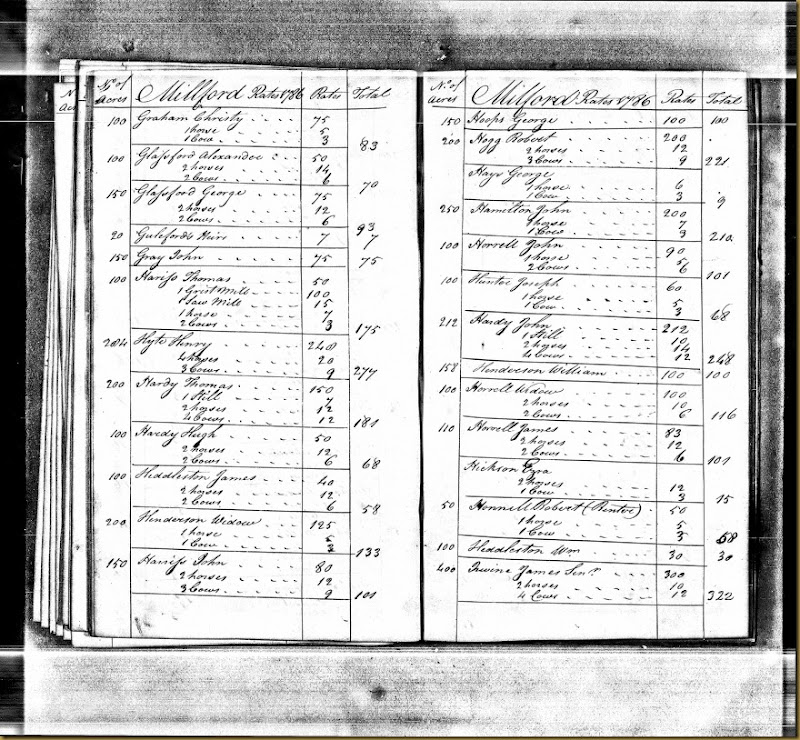 No. of Acres Millford Rates 1786 Rates Total
100 Graham Christy 75
1 horse 5
1 Cow 3 83
100 Glassford Alexander 50
2 horses 14
2 Cows 6 70
150 Glassford George 75
2 horses 12
2 Cows 6 93
20 Guleford's Heirs 7 7
150 Gray John 75 75
100 Hariss Thomas 50
1 Grist Mill 100
1 Saw Mill 15
1 horse 7
2 Cows 3 175
284 Hyte Henry 248
4 horses 20
3 Cows 9 277
200 Hardy Thomas 150
1 Still 7
2 horses 12
4 Cows 12 181
100 Hardy Hugh 50
2 horses 12
2 Cows 6 68
100 Heddleston James 40
2 horses 12
2 Cows 6 58
200 Henderson Widow 125
1 horse 5
1 Cow 3 133
150 Hariss John 80
2 horses 12
3 Cows 9 101
No. of Acres Milford Rates 1786 Rates Total
150 Hoops George 100 100
200 Hogg Robert 200
2 horses 12
3 Cows 9 221
Hays George
1 horse 6
1 Cow 3 9
250 Hamilton John 200
1 horse 7
1 Cow 3 210
100 Horrell John 90
1 horse 5
2 Cows 6 101
100 Hunter Joseph 60
1 horse 5
1 Cow 3 68
212 Hardy John 212
1 Still 10
2 horses 14
4 Cows 12 248
158 Henderson William 100 100
100 Horrell Widow 100
2 horses 10
2 Cows 6 116
110 Horrell James 83
2 horses 12
2 Cows 6 101
Hickson Ezra
2 horses 12
1 Cow 3 15
50 Hennell Robert (Renter) 50
1 horse 5
1 Cow 3 58
100 Heddleston Wm 30 30
400 Irwine James Senr. 300
2 horses 10
4 Cows 12 322